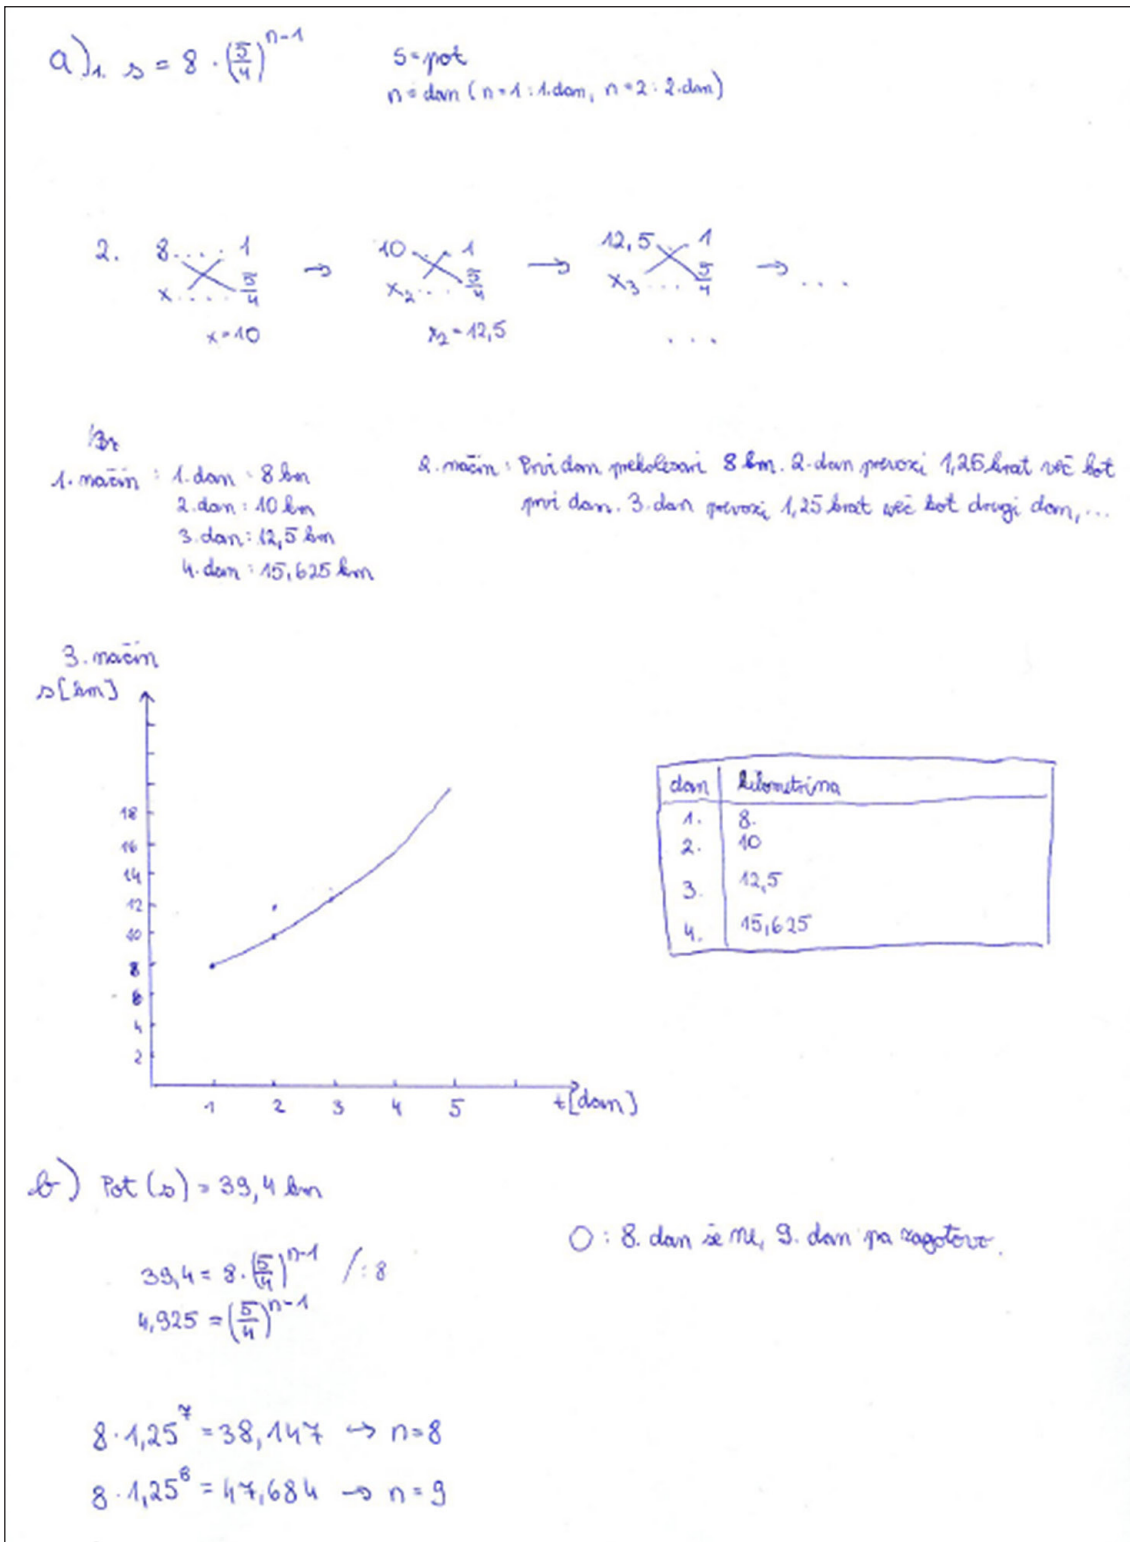 a) 1. s = 8 · (5/4)^(n-1)
s = pot
n = dan (n=1 : 1.dan, n=2 : 2.dan)
2. 8 .... 1 → 10 ... 1 → 12,5 ... 1 → ...
x .... 5/4 x₂ ... 5/4 x₃ .... 5/4
x=10 x₂=12,5 ...
1. način : 1. dan : 8 km
2. dan : 10 km
3. dan : 12,5 km
4. dan : 15,625 km
2. način : Prvi dan prekolesari 8 km. 2. dan prevozi 1,25 krat več kot
prvi dan. 3. dan prevozi 1,25 krat več kot drugi dan, ...
3. način
s[km]
18
16
14
12
10
8
6
4
2
1 2 3 4 5 t[dan]
dan kilometrina
1. 8.
2. 10
3. 12,5
4. 15,625
b) Pot (s) = 39,4 km
39,4 = 8 · (5/4)^(n-1) /:8
4,925 = (5/4)^(n-1)
O : 8. dan še ne, 9. dan pa zagotovo.
8 · 1,25^7 = 38,147 → n=8
8 · 1,25^8 = 47,684 → n=9